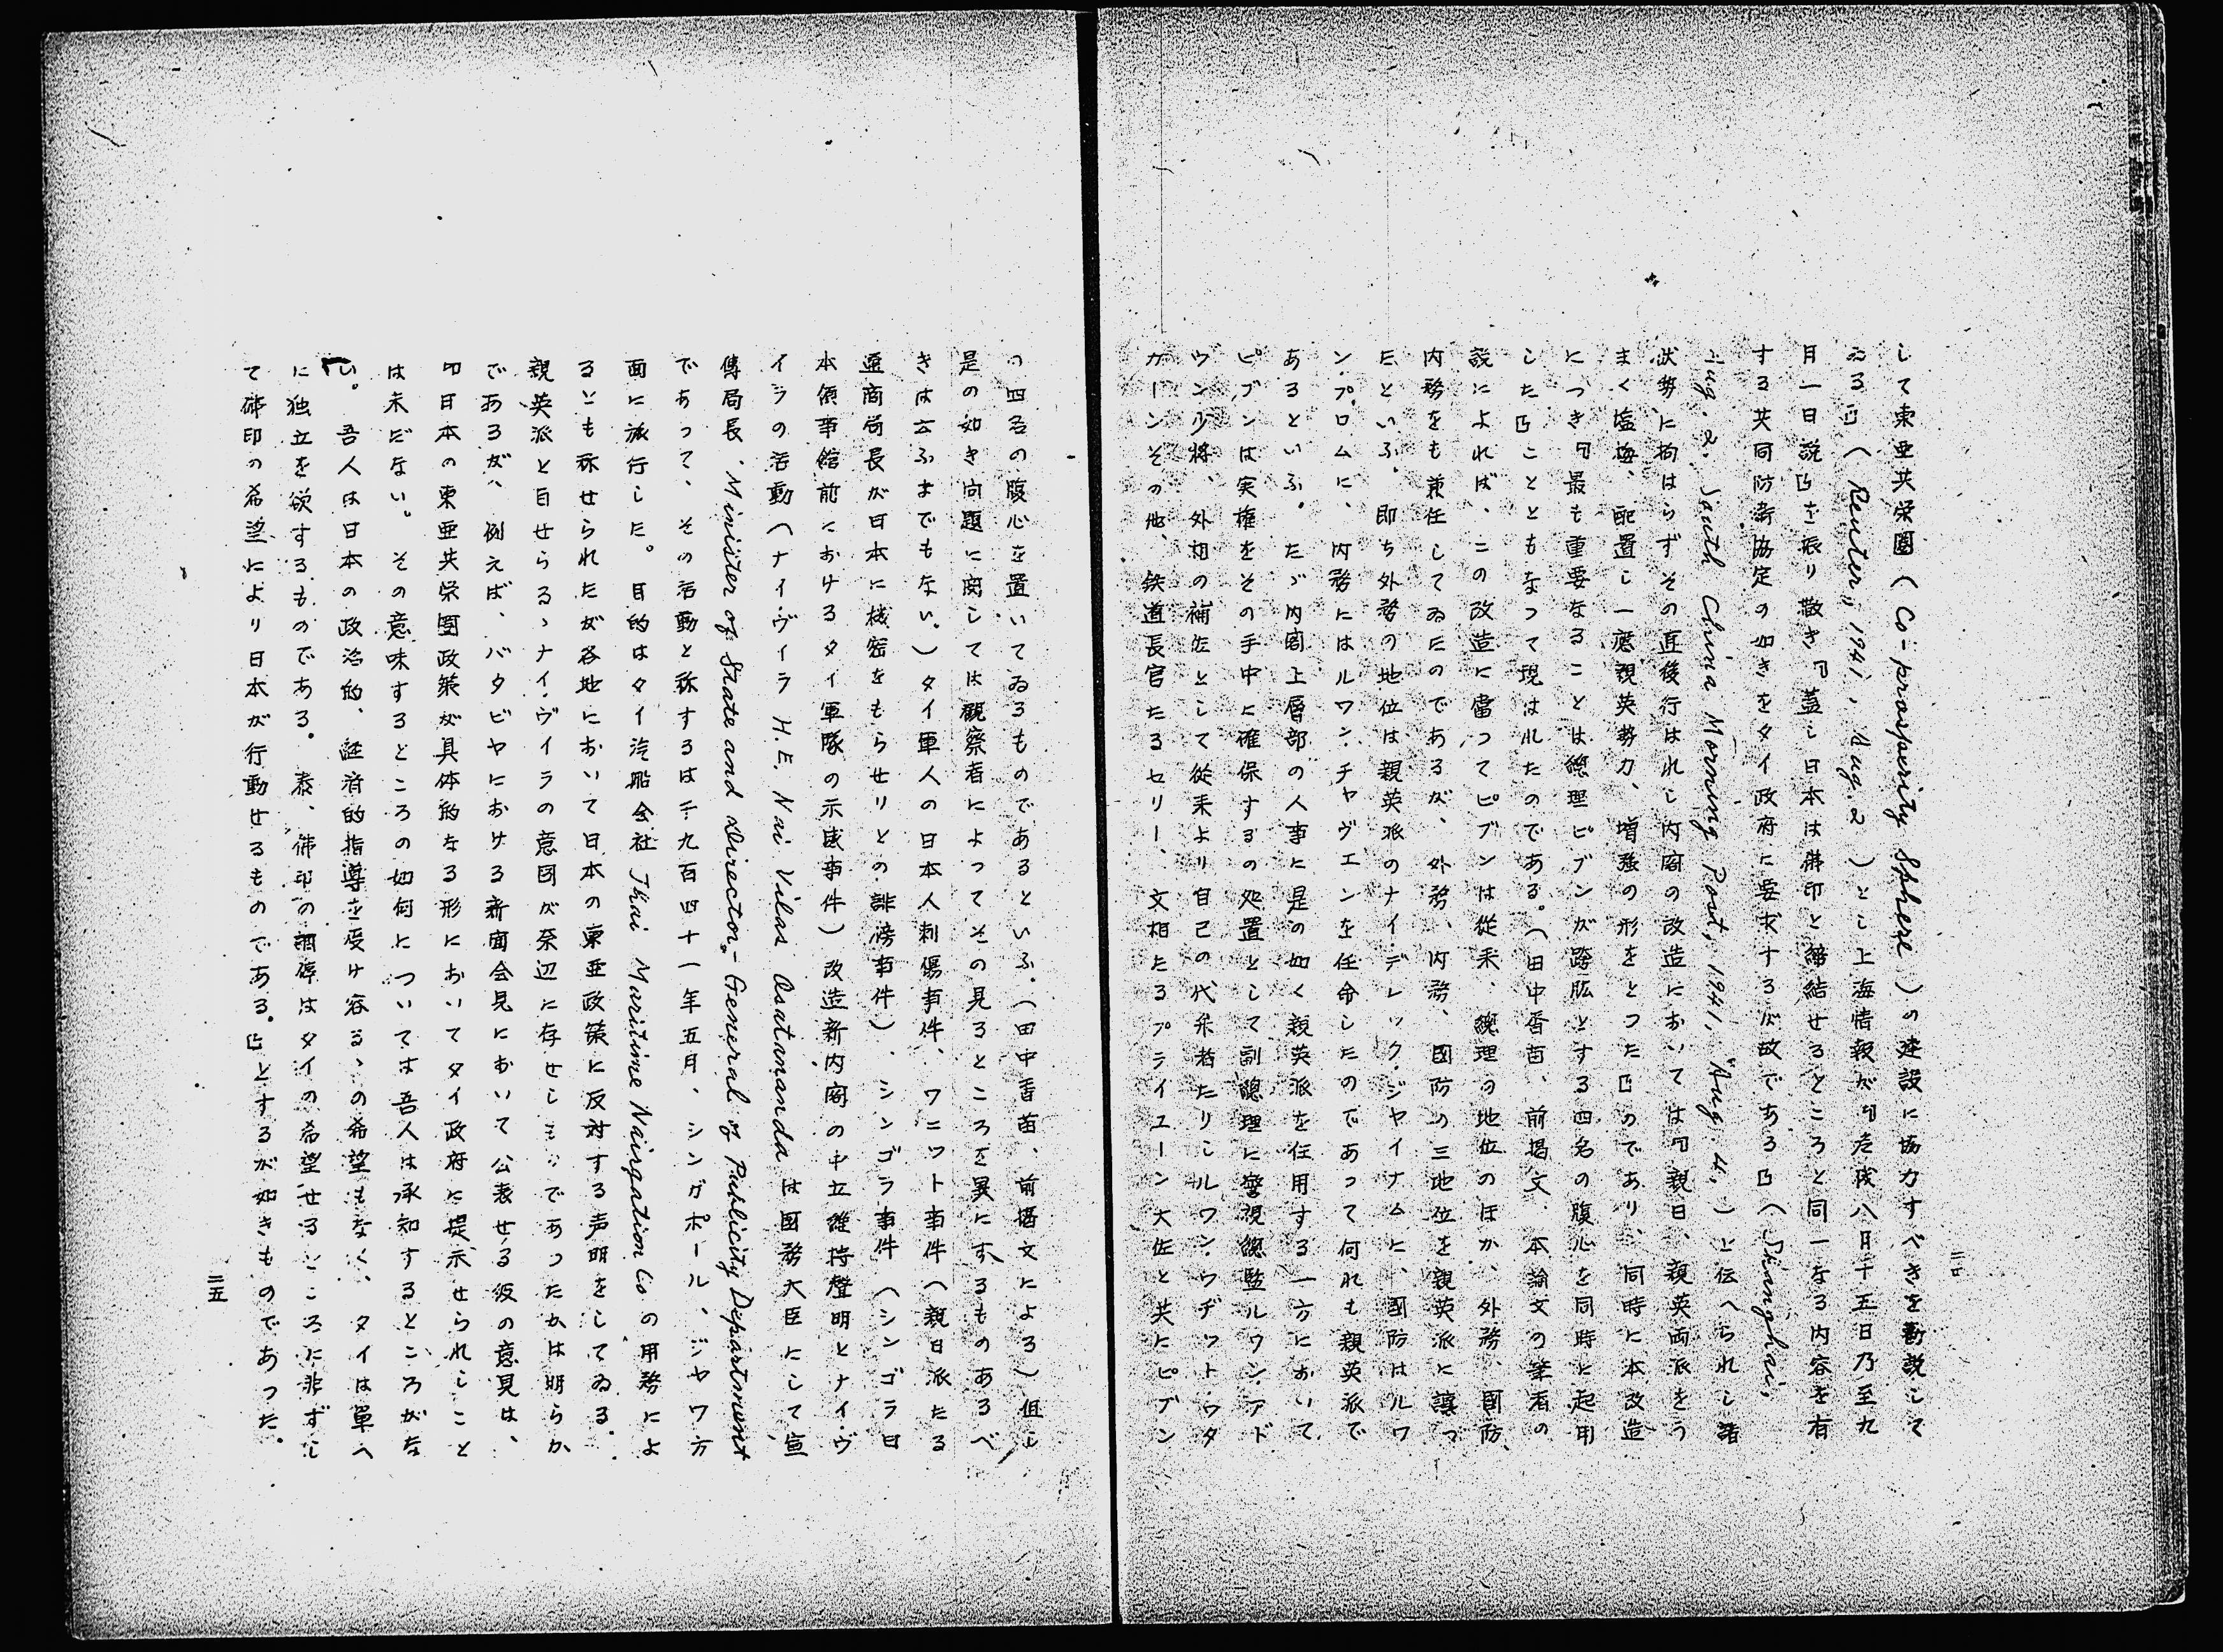 して東亜共栄圏（Co-prosperity Sphere）の建設に協力すべきを勧説して
ゐる』（Reuter, 1941, Aug. 2）とし上海情報だ『危機八月十五日乃至九
月一日説』を振り撒き『蓋し日本は佛印と締結せるところと同一なる内容を有
する共同防衛協定の如きをタイ政府に要求するが故である』（Shanghai,
Aug. 2. South China Morning Post, 1941, Aug. 4.）と伝へられし諸
状勢に拘はらずその直後行はれし内閣の改造においては『親日、親英両派をう
まく塩梅、配置し一應親英勢力、増強の形をとつた』のであり、同時に本改造
につき『最も重要なることは總理ピブンが股肱とする四名の腹心を同時に起用
した』ことともなつて現はれたのである。（田中香苗、前掲文、本論文の筆者の
説によれば、この改造に當つてピブンは従来、總理の地位のほか、外務、国防、
内務をも兼任してゐたのであるが、外務、内務、国防の三地位を親英派に譲つ
たといふ。即ち外務の地位は親英派のナイ・デレック・ジヤイナムに、国防はルワ
ン・プロムに、内務にはルワン・チャヴエンを任命したのであつて何れも親英派で
あるといふ。たゞ内閣上層部の人事に是の如く親英派を任用する一方において
ピブンは実権をその手中に確保するの処置として副總理に警視總監ルワン・アド
ウン少将、外相の補佐として従来より自己の代弁者たりしルワン・ウヂツト・ウタ
カーンその他、鉄道長官たるセリー、文相たるプライユーン大佐と共にピブン
二四
の四名の腹心を置いてゐるものであるといふ。（田中香苗、前掲文による）但し
是の如き問題に関しては観察者によつてその見るところを異にするものあるべ
きは云ふまでもない。）タイ軍人の日本人刺傷事件、ワニット事件（親日派たる
通商局長が日本に機密をもらせりとの誹謗事件）、シンゴラ事件（シンゴラ日
本領事館前におけるタイ軍隊の示威事件）改造新内閣の中立維持聲明とナイ・ヴ
イラの活動（ナイ・ヴィラ H.E. Nai Vilas Osatananda は國務大臣にして宣
傳局長、Minister of State and Director-General of Publicity Department
であつて、その活動と称するは千九百四十一年五月、シンガポール、ジヤワ方
面に旅行した。目的はタイ汽船会社 Thai Maritime Navigation Co の用務によ
るとも称せられたが各地において日本の東亜政策に反対する声明をしてゐる。
親英派と目せらるゝナイ・ヴイラの意図が奈辺に存せしものであつたかは明らか
であるが、例えば、バタビヤにおける新聞会見において公表せる彼の意見は、
『日本の東亜共栄圏政策が具体的なる形においてタイ政府に提示せられしこと
は未だない。その意味するところの如何については吾人は承知するところがな
い。吾人は日本の政治的、経済的指導を受け容るゝの希望もなく、タイは單へ
に独立を欲するものである。泰、佛印の調停はタイの希望せるところに非ずし
て佛印の希望により日本が行動せるものである。』とするが如きものであつた。
二五